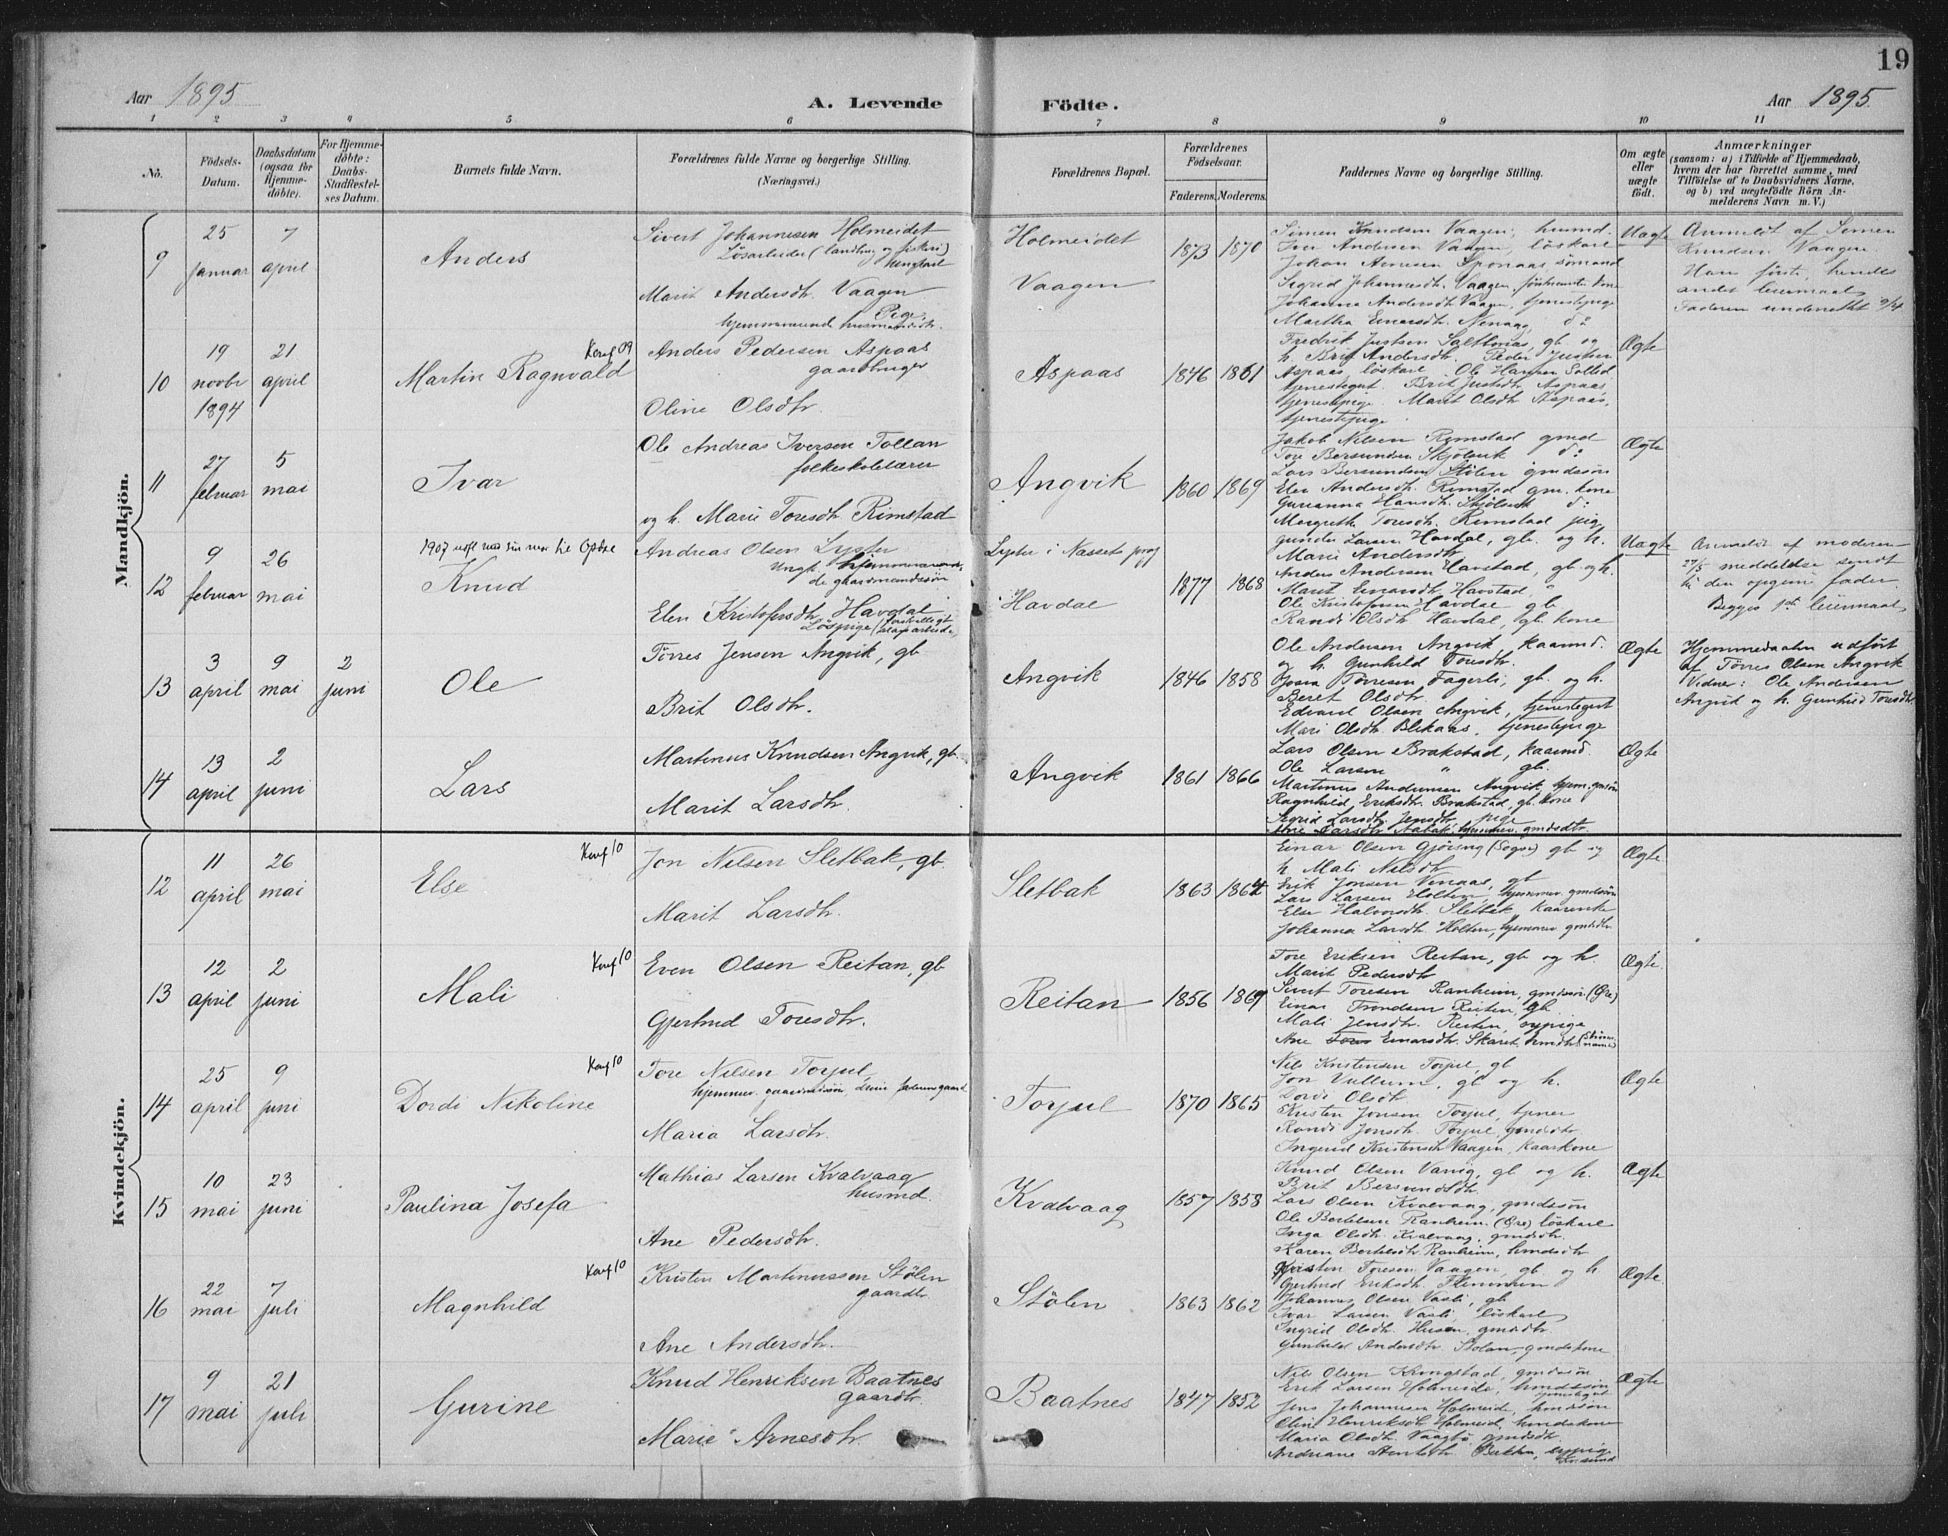 19
Aar 1895
A. Levende Födte.
Aar 1895
1 2 3 4 5 6 7 8 9 10 11
No.
Födsels-Datum.
Daabsdatum (ogsaa for Hjemmedöbte).
For Hjemmedöbte: Daabs-Stadfæstelses Datum.
Barnets fulde Navn.
Forældrenes fulde Navne og borgerlige Stilling.
(Næringsvei.)
Forældrenes Bopæl.
Forældrenes Födselsaar.
Faderens. Moderens.
Faddernes Navne og borgerlige Stilling.
Om ægte eller uægte födt.
Anmærkninger
(saasom: a) i Tilfælde af Hjemmedaab, hvem der har forrettet samme, med Tilföielse af to Daabsvidners Navne, og b) ved uægtefödte Börn Anmelderens Navn m. V.)
Mandkjön.
9
25 januar
7 april
Anders
Sivert Johannesen Holmeidet
Løsarbeider (landbrug og fiskeri) ungkarl
Marit Andersdtr. Vaagen
Pige, hjemmeværende husmandsdtr.
Holmeidet
Vaagen
1873 1870
Simen Knudsen Vaagen, husmd.
Iver Andersen Vaagen, løskarl
Johan Arnesen Sponaas sømand
Sigrid Johannesdtr. Vaagen,
Johanna Andersdtr Vaagen, tjenestepige
Martha Einarsdtr. do
Uægte
Anmeldt af Simen
Knudsen Vaagen
Hans første, hendes
andet leiermaal
Faderen underrettet 9/4
10
19 novbr 1894
21 april
Konf 09
Martin Ragnvald
Anders Pedersen Aspaas
gaardbruger
Oline Olsdtr.
Aspaas
1846 1861
Fredrik Justsen gb og
h. Brit Andersdtr. Peder Justsen
Aspaas, løskarl. Ole Hansen
tjenestegut. Brit Justsdtr Aspaas,
tjenestepige. Marit Olsdtr Aspaas,
tjenestepige.
Ægte
11
27 februar
5 mai
Ivar
Ole Andreas Iversen Tollan
folkeskolelærer
og h. Marie Toresdtr. Rimstad
Angvik
1860 1869
Jakob Nilsen Rimstad gmd
Tore Bersundsen Skjølsvik do
Lars Bersundsen Stølen gmdssøn
Elen Andersdtr. Rimstad gm. kone
Gurianna Hansdtr. Skjølsvik do
Margrethe Toresdtr. Rimstad pige
Ægte
12
9 februar
26 mai
1907 utfl med sin mor til Opdal
Knud
Andreas Olsen Lyster
Ungk. hjemmeværende gaardmandssøn
Elen Kristofersdtr. Havdal
Løspige
Lyster i Nesset prgj
Havdal
1877 1868
Gunder Larsen Havdal, gb. og h.
Marie Andersdtr.
Anders Andersen Havstad, gb. og h.
Marit Einarsdtr Havstad,
Ole Kristofersen Havdal gb
Randi Olsdtr Havdal, gb. kone
Uægte
Anmeldt af moderen
27/5 meddelelse sendt
til den opgivne fader
Begges 1ste leiermaal
13
3 april
9 mai
2 juni
Ole
Tørres Jensen Angvik, gb
Brit Olsdtr.
Angvik
1846 1858
Ole Andersen Angvik kaarmd.
og h. Gunhild Toresdtr.
Tørresen Fagerli, gb. og h.
Beret Olsdtr
Edvard Olsen Angvik, tjenestegut
Mari Olsdtr Blikaas, tjenestepige
Ægte
Hjemmedaaben udført
af Tørres Olsen Angvik
Vidner: Ole Andersen
Angvik og h. Gunhild Toresdtr.
14
13 april
2 juni
Lars
Martinus Knudsen Angvik, gb.
Marit Larsdtr.
Angvik
1861 1866
Lars Olsen Brakstad, kaarmd
Ole Larsen " gb.
Martinus Andersen Angvik hjem. gmdsøn
Ragnhild Eriksdtr. Brakstad, gb. kone
Sigrid Larsdtr Jensdtr. pige
Ane Larsdtr hjemmev. gmdsdtr.
Ægte
Kvindekjön.
12
11 april
26 mai
Konf 10
Else
Jon Nilsen Sletbak, gb.
Marit Larsdtr.
Sletbak
1863 1864
Einar Olsen Gjøring gb og
h Mali Nilsdtr
Erik Jonsen Venaas, gb
Lars Larsen Holten, hjemmev. gmdssøn
Else Halvorsdtr. Sletbak kaarenke
Johanna Larsdtr Holten, hjemmev gmdsdtr
Ægte
13
12 april
2 juni
Konf 10
Mali
Even Olsen Reitan, gb
Gjertrud Toresdtr.
Reitan
1856 1869
Tore Eriksen Reitan, gb og h.
Marit Pedersdtr
Sivert Toresen Ranheim, gmdssøn (Øre)
Einar Trondsen Reiten, gb
Mali Jensdtr. Reiten,
Ane Einarsdtr. Skaret
Ægte
14
25 april
9 juni
Konf 10
Dordi Nikoline
Tore Nilsen Torjul
hjemmev. gaardmdssøn,
Maria Larsdtr.
Torjul
1870 1865
Nils Kristensen Torjul, gb
Jon Vullum, gb og h.
Dordi Olsdtr
Kristen Jonsen Torjul, tjener
Randi Jonsdtr. Torjul, gmdsdtr
Ingrid Kristensdtr Vaagen, kaarkone
Ægte
15
10 mai
23 juni
Paulina Josefa
Mathias Larsen Kvalvaag
husmd.
Ane Pedersdtr.
Kvalvaag
1857 1858
Knud Olsen gb og h.
Brit Bersundsdtr.
Lars Olsen Kvalvaag, gmdssøn
Ole Bertelsen Ranheim (Øre) løskarl
Inga Olsdtr. Kvalvaag, gmdsdtr.
Karen Bertelsdtr Ranheim, hmdsdtr
Ægte
16
22 mai
7 juli
Konf 10
Magnhild
Kristen Martinussen Stølen
gaardbr.
Ane Andersdtr.
Stølen
1863 1862
Kristen Toresen Vaagen, gb og h
Gjertrud Eriksdtr.
Johannes Olsen Vasli, gb
Ivar Larsen Vasli løskarl
Ingrid Olsdtr. Husen, gmdsdtr
Gunhild Andersdtr Stølen, gmdskone
Ægte
17
9 mai
21 juli
Gurine
Knud Henriksen Baatnes
gaardbr.
Marie Arnesdtr.
Baatnes
1847 1852
Nils Olsen Kringstad, gmdssøn
Erik Larsen Holmeide, hmdssøn
Jens Johannesen Holmeid, hmdssøn
Oline Henriksdtr Holmeid, hmdskone
Maria Olsdtr. Vaagbø gmdsdtr.
Ægte